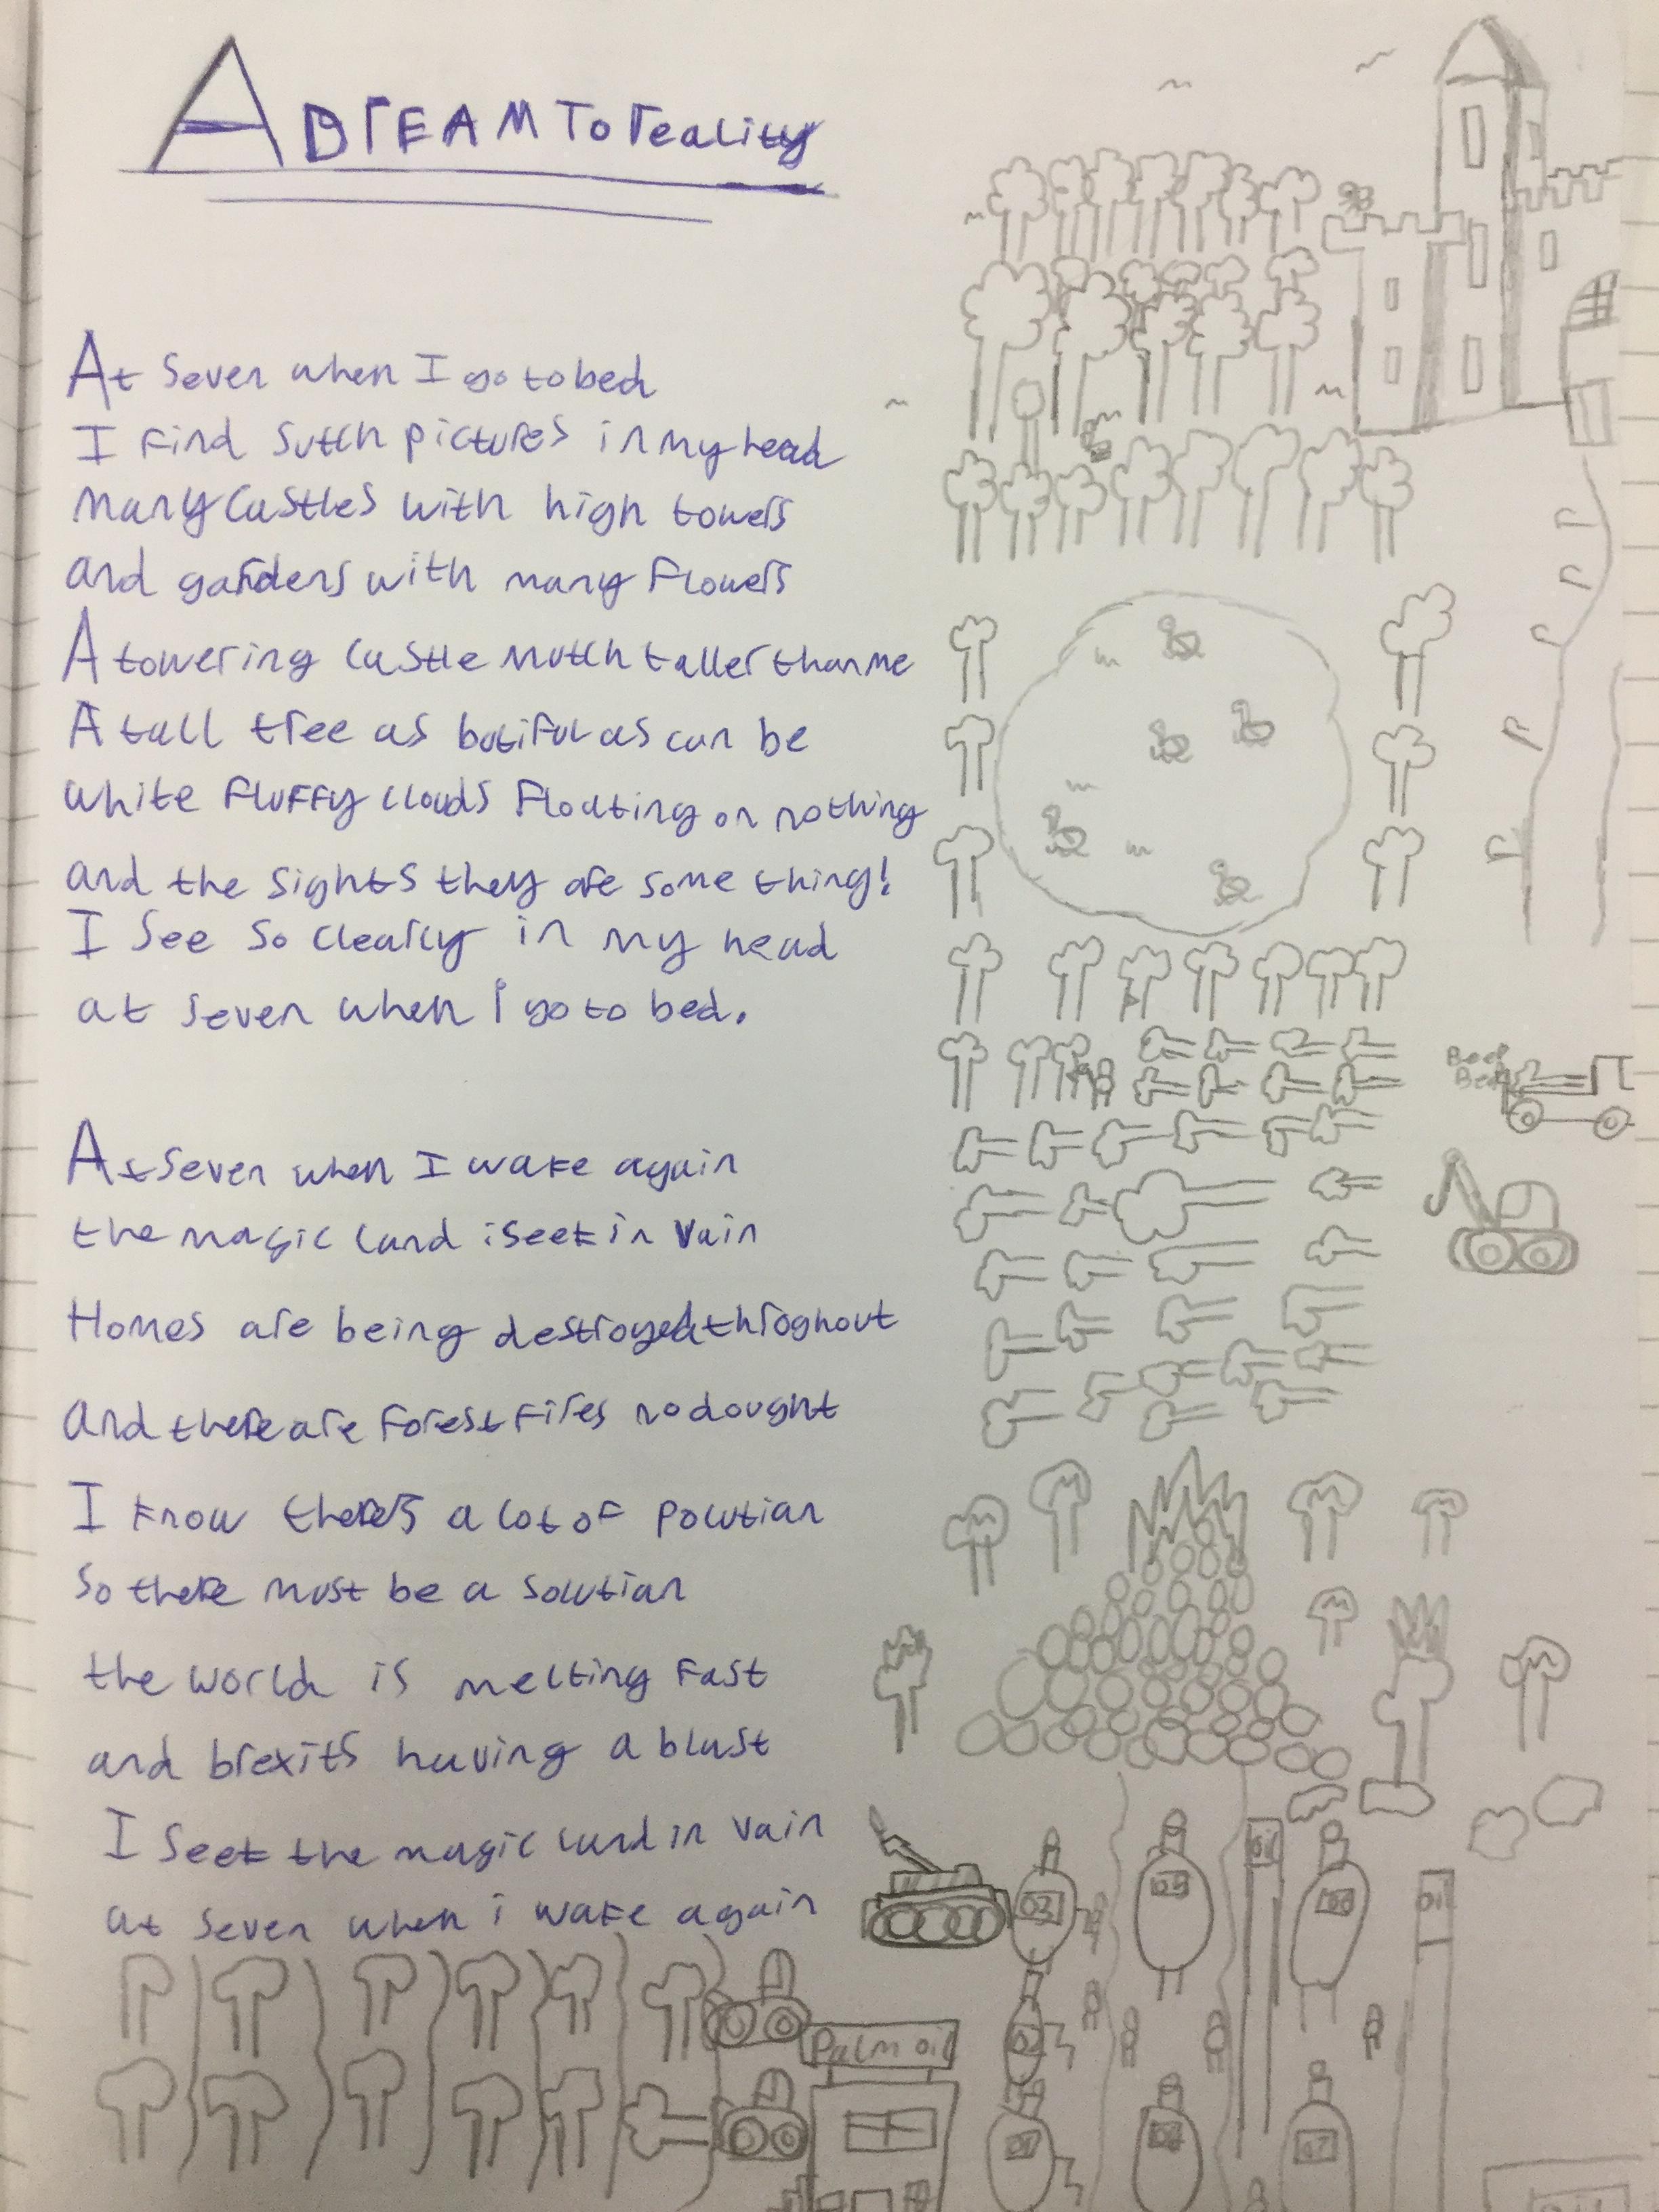 A DrEAM To reality
At seven when I go to bed
I Find sutch pictures in my head
many castles with high towers
and gardens with many Flowers
A towering castle mutch taller than me
A tall tree as butiful as can be
white Fluffy clouds Floating on nothing
and the sights they are some thing!
I see so clearly in my head
at seven when i go to bed.
At seven when I wake again
the magic land i seek in vain
Homes are being destroyed throghout
and there are Forest Fires no dought
I know there's a lot of polutian
so there must be a solutian
the world is melting Fast
and brexits having a blast
I seek the magic land in vain
at seven when i wake again
Beep
Beep
oil
oil
Palm oil
03
02
07